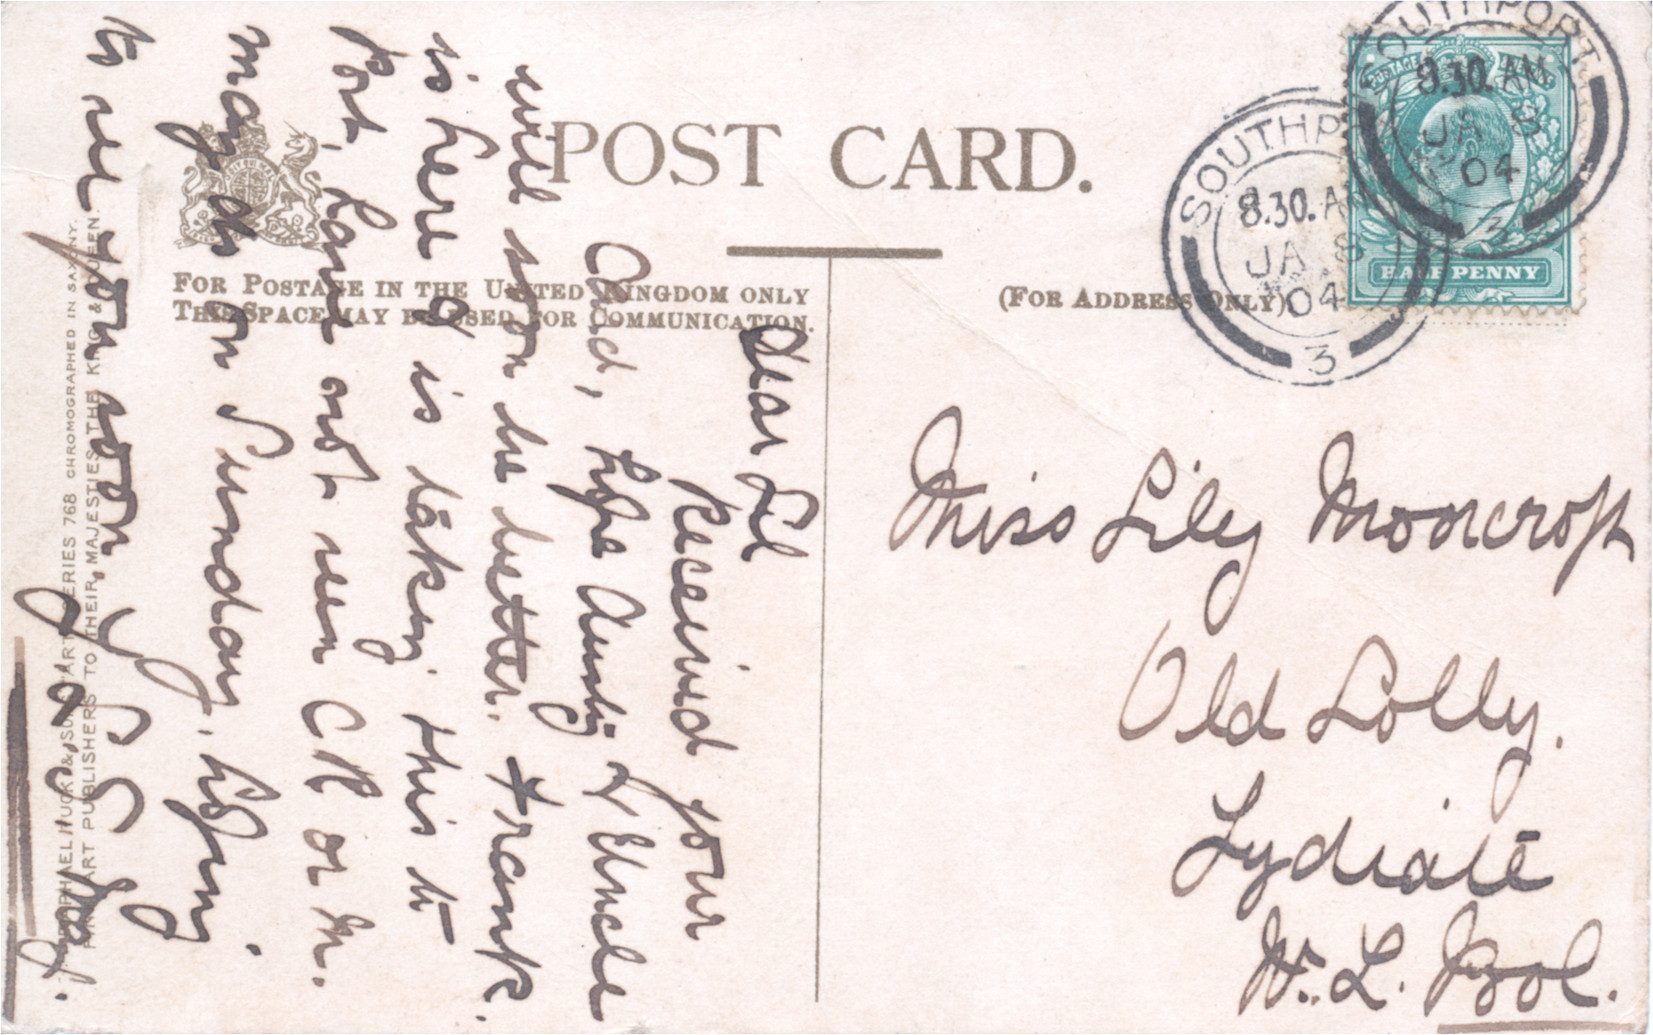 POST CARD.
FOR POSTAGE IN THE UNITED KINGDOM ONLY
THIS SPACE MAY BE USED FOR COMMUNICATION.
(FOR ADDRESS ONLY)
SOUTHPORT
8.30. AM
JA 8
04
3
SOUTHPORT
8.30. AM
JA 8
04
3
POSTAGE
HALF PENNY
Miss Lily Moorcroft
Old Lolly.
Lydiate
Nr. L. Pool.
Dear Lil
Received your
Card, hope Aunty & Uncle
will soon be better. Frank
is here & is taking this to
Post, have not seen CR or M.
may do on Sunday, hoping
to see you soon,
RAPHAEL TUCK & SONS "ART" SERIES 768 CHROMOGRAPHED IN SAXONY.
FINE ART PUBLISHERS TO THEIR MAJESTIES THE KING & QUEEN.